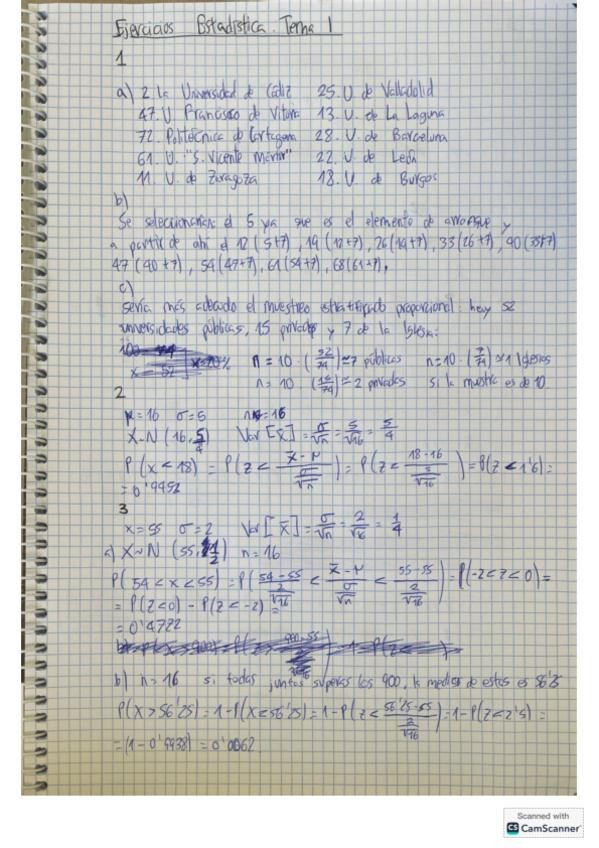 Ejercicios Estadística. Tema 1
1
a) 2 la Universidad de Cádiz 25. U de Valladolid
47. U Francisco de Vitoria 13. U. de La Laguna
72. Politécnica de Cartagena 28. U de Barcelona
61. U. "S. Vicente Mártir" 22. U de León
11. U. de Zaragoza 18. U de Burgos
b)
Se seleccionarían el 5 ya que es el elemento de arranque y
a partir de ahí el 12 (5+7), 19 (12+7), 26 (19+7), 33 (26+7), 40 (33+7)
47 (40+7), 54 (47+7), 61 (54+7), 68 (61+7).
c)
sería más adecuado el muestreo estratificado proporcional: hay 52
universidades públicas, 15 privadas y 7 de la Iglesia:
n = 10 · (52/74) ≃ 7 públicas n = 10 · (7/74) ≃ 1 Iglesias
n = 10 (15/74) ≃ 2 privados si la muestra es de 10.
2
μ = 16 σ = 5 n = 16
X~N (16, 5/4) Var [x̄] = σ/√n = 5/√16 = 5/4
P(x < 18) = P(z < (x̄ - μ)/(σ/√n)) = P(z < (18-16)/(5/√16)) = P(z < 1'6) =
= 0'9452
3
x = 55 σ = 2 Var [x̄] = σ/√n = 2/√16 = 1/4
a) X~N (55, 1/2) n = 16
P(54 < x < 55) = P((54-55)/(2/√16) < (x̄ - μ)/(σ/√n) < (55-55)/(2/√16)) = P(-2 < z < 0) =
= P(z < 0) - P(z < -2) =
= 0'4722
b) n = 16 si todas juntas superas los 900, la media de estos es 56'25
P(X > 56'25) = 1 - P(X ≤ 56'25) = 1 - P(z < (56'25-55)/(2/√16)) = 1 - P(z < 2'5) =
= (1 - 0'9938) = 0'0062
Scanned with
CS CamScanner